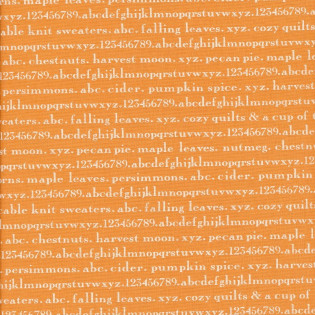 ens. maple leaves. persimmons. abc. cider. pumpkin
wxyz.123456789.abcdefghijklmnopqrstuvwxyz.123456789.
able knit sweaters. abc. falling leaves. xyz. cozy quilts
lmnopqrstuvwxyz.123456789.abcdefghijklmnopqrstuvwxy
. abc. chestnuts. harvest moon. xyz. pecan pie. maple le
123456789.abcdefghijklmnopqrstuvwxyz.123456789.abcde
. persimmons. abc. cider. pumpkin spice. xyz. harvest
hijklmnopqrstuvwxyz.123456789.abcdefghijklmnopqrstuv
eaters. abc. falling leaves. xyz. cozy quilts & a cup of t
uvwxyz.123456789.abcdefghijklmnopqrstuvwxyz.123456789.abcde
st moon. xyz. pecan pie. maple leaves. nutmeg. chestnu
pqrstuvwxyz.123456789.abcdefghijklmnopqrstuvwxyz.12
ens. maple leaves. persimmons. abc. cider. pumpkin
wxyz.123456789.abcdefghijklmnopqrstuvwxyz.123456789.
table knit sweaters. abc. falling leaves. xyz. cozy quilt
lmnopqrstuvwxyz.123456789.abcdefghijklmnopqrstuvwx
. abc. chestnuts. harvest moon. xyz. pecan pie. maple l
123456789.abcdefghijklmnopqrstuvwxyz.123456789.abcde
. persimmons. abc. cider. pumpkin spice. xyz. harves
hijklmnopqrstuvwxyz.123456789.abcdefghijklmnopqrstu
eaters. abc. falling leaves. xyz. cozy quilts & a cup of
xyz.123456789.abcdefghijklmnopqrstuvwxyz.123456789.abcd